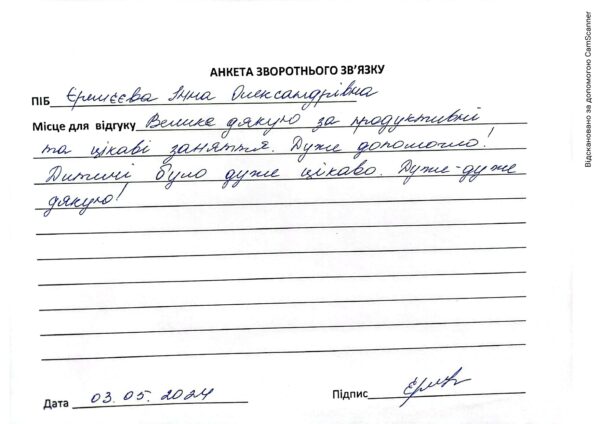 АНКЕТА ЗВОРОТНЬОГО ЗВ'ЯЗКУ
ПІБ Єремєєва Інна Олександрівна
Місце для відгуку Велике дякую за продуктивні
та цікаві заняття. Дуже допомогло!
Дитині було дуже цікаво. Дуже-дуже
дякую!
Дата 03.05.2024
Підпис
Відскановано за допомогою CamScanner